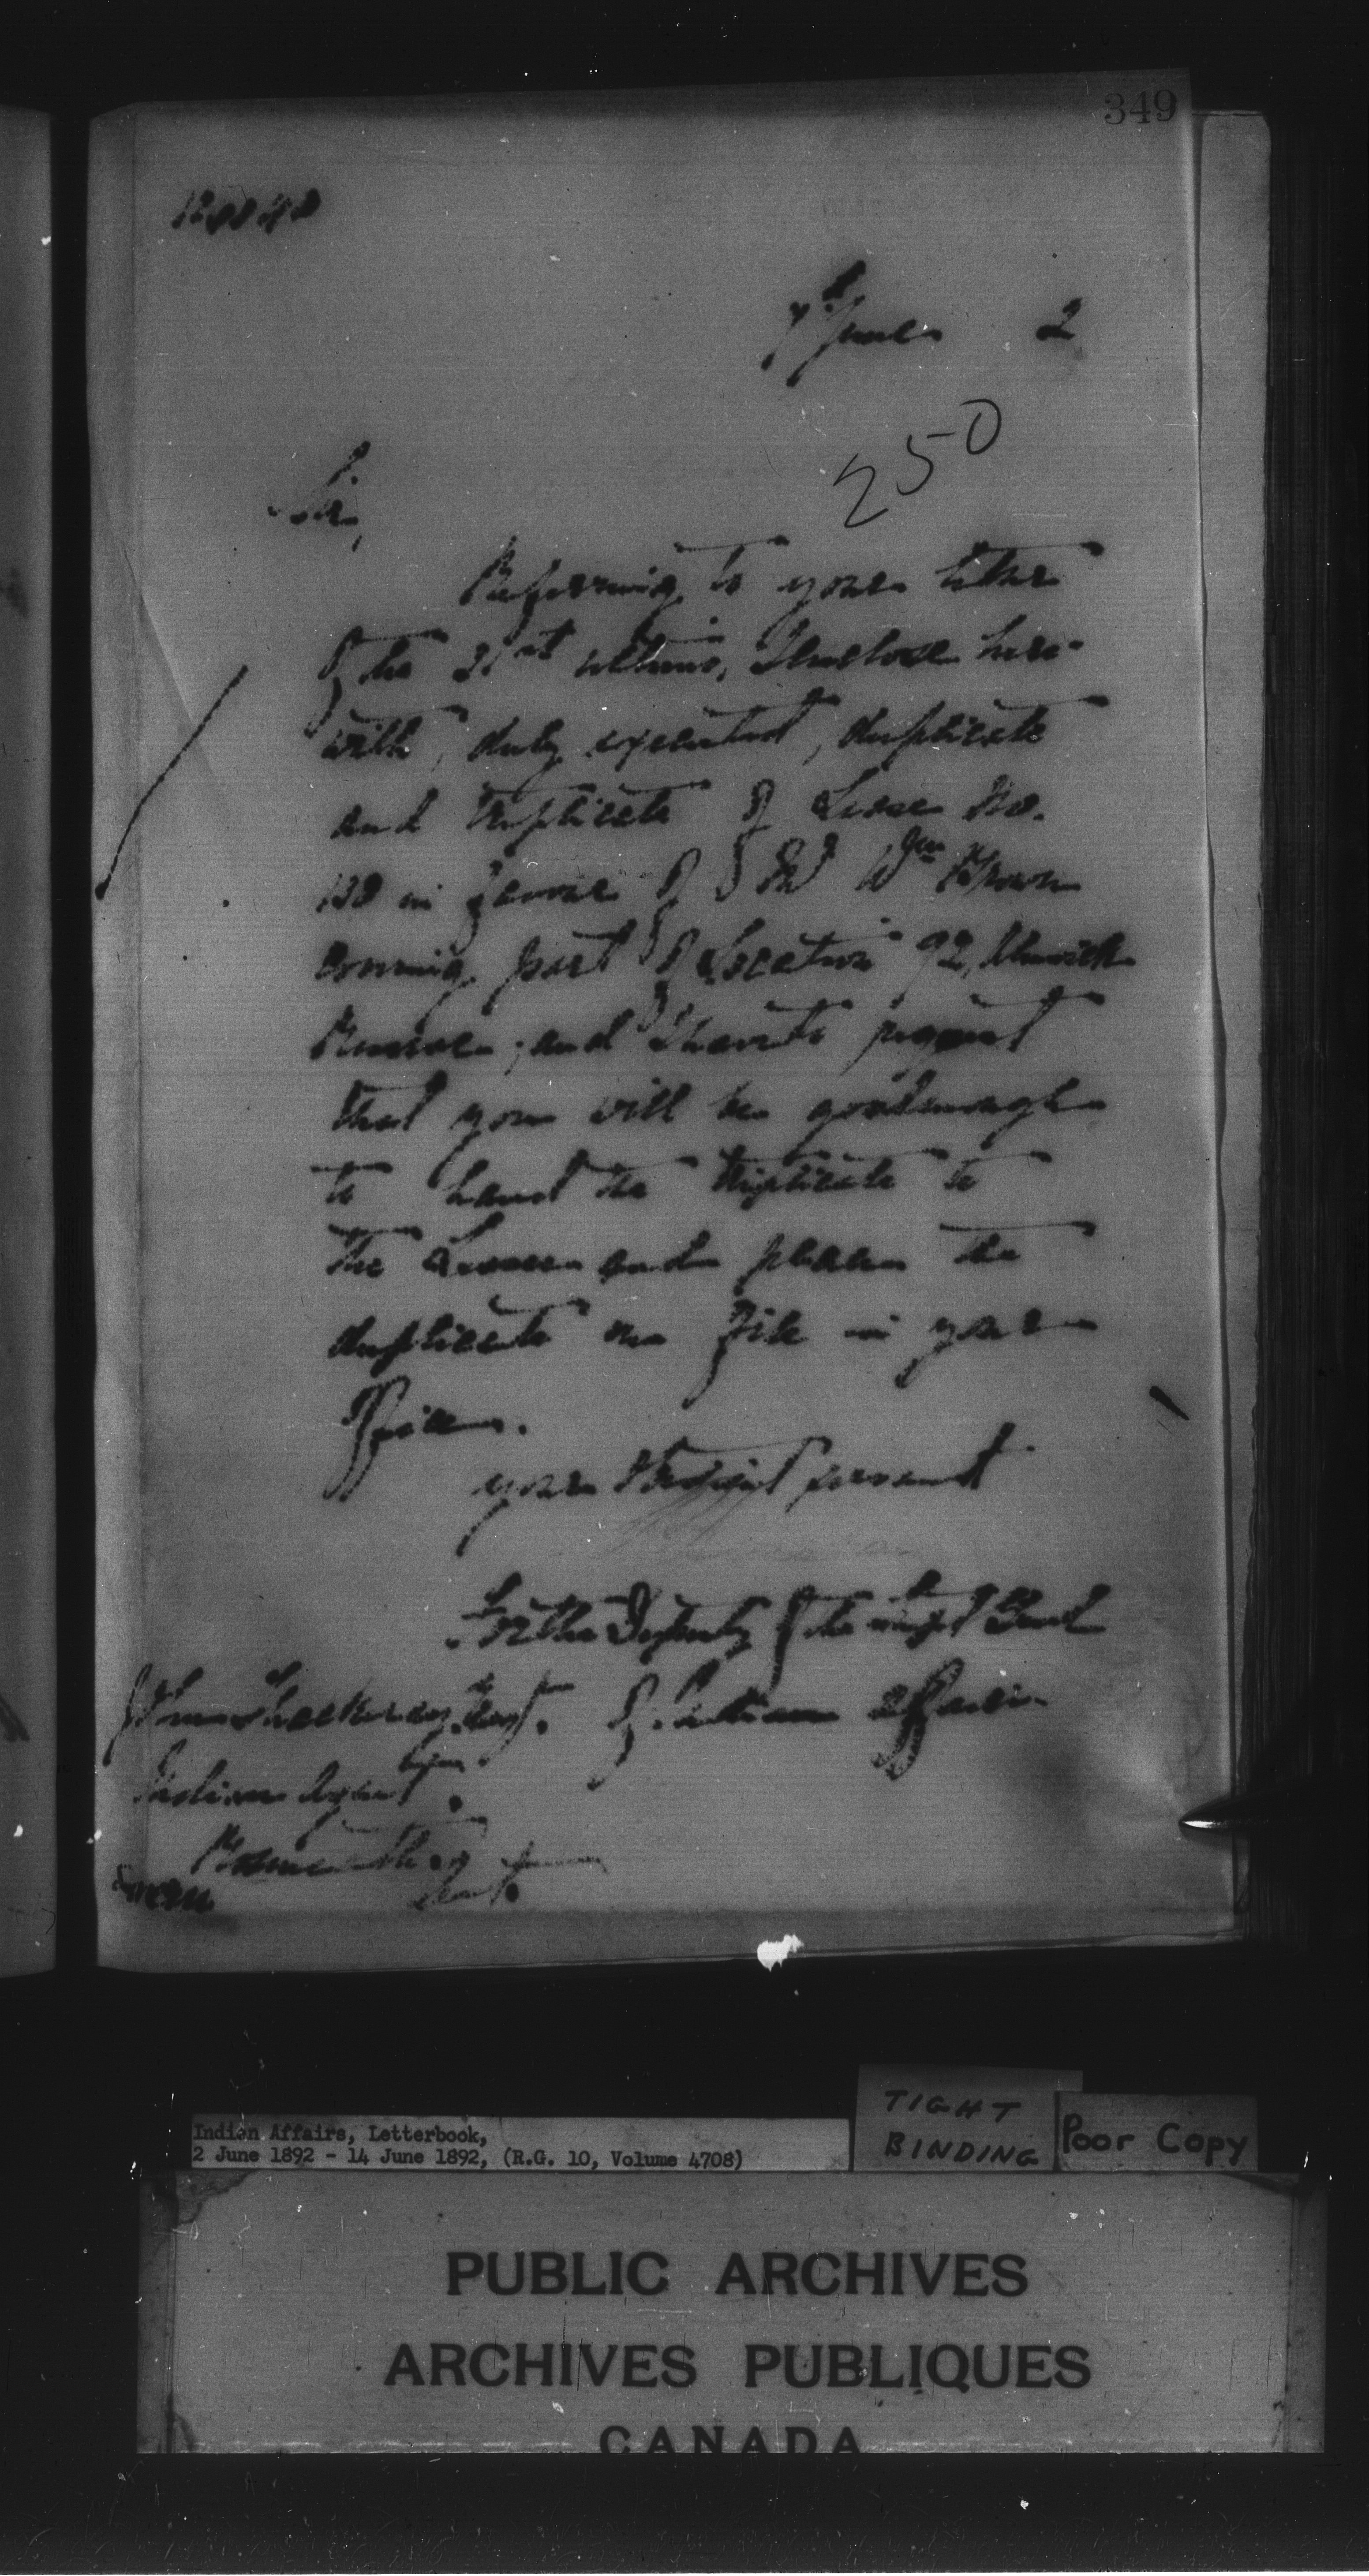 349
7th June 2
250
Sir,
Referring to your letter
of the 31st ultimo, I enclose here-
with, duly executed, duplicate
and triplicate of Lease No.
138 in favour of Wm Brown
covering part of Location 92, Alnwick
Reserve, and I have to request
that you will be good enough
to hand the triplicate to
the Lessee and place the
duplicate on file in your
Office.
Your obedient servant
For the Deputy of the Supt Genl
John Thackeray, Esq. of Indian Affairs.
Indian Agent
Roseneath
Ont.
Indian Affairs, Letterbook,
2 June 1892 - 14 June 1892, (R.G. 10, Volume 4708)
TIGHT
BINDING
Poor Copy
PUBLIC ARCHIVES
ARCHIVES PUBLIQUES
CANADA